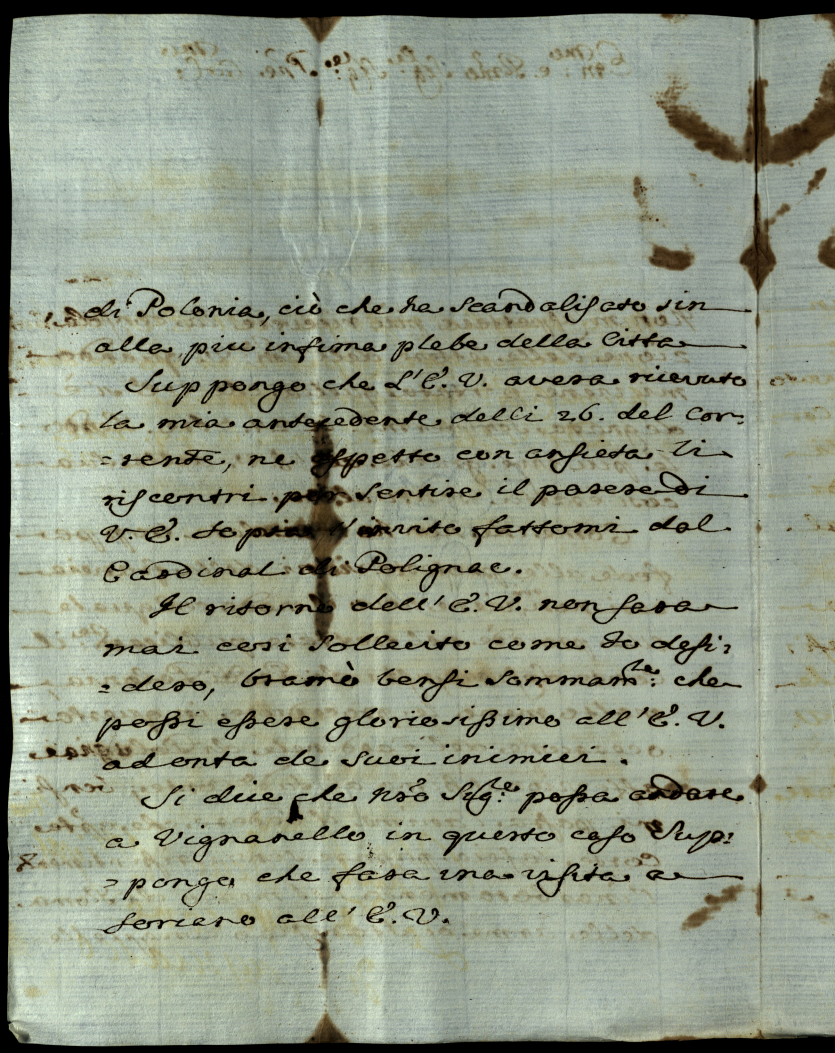 di Polonia, ciò che ha scandalisato sin
alla piu infima plebe della Citta
Suppongo che L'E. V. avera ricevuto
la mia antecedente delli 26. del Cor=
=rente, ne aspetto con ansieta li
riscontri per sentire il parere di
V. E. sopra l'invito fattomi dal
Cardinal di Polignac.
Il ritorno dell' E. V. non sara
mai cosi sollecito come Io desi=
=dero, bramò bensi sommamte: che
possi essere gloriosissimo all' E. V.
ad onta de suoi inimici.
Si dice che Nro Sigre possa andare
a Vignanello in questo caso sup=
=pongo che fara una visita a
Soriano all' E. V.